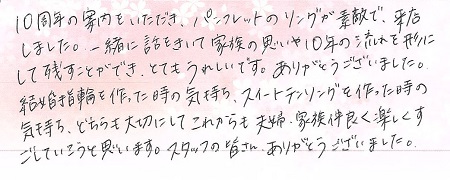 10周年の案内をいただき、パンフレットのリングが素敵で、来店
しました。一緒に話をきいて家族の思いや10年の流れを形に
して残すことができ、とてもうれしいです。ありがとうございました。
結婚指輪を作った時の気持ち、スイートテンリングを作った時の
気持ち、どちらも大切にしてこれからも夫婦、家族仲良く楽しくす
ごしていこうと思います。スタッフの皆さん、ありがとうございました。